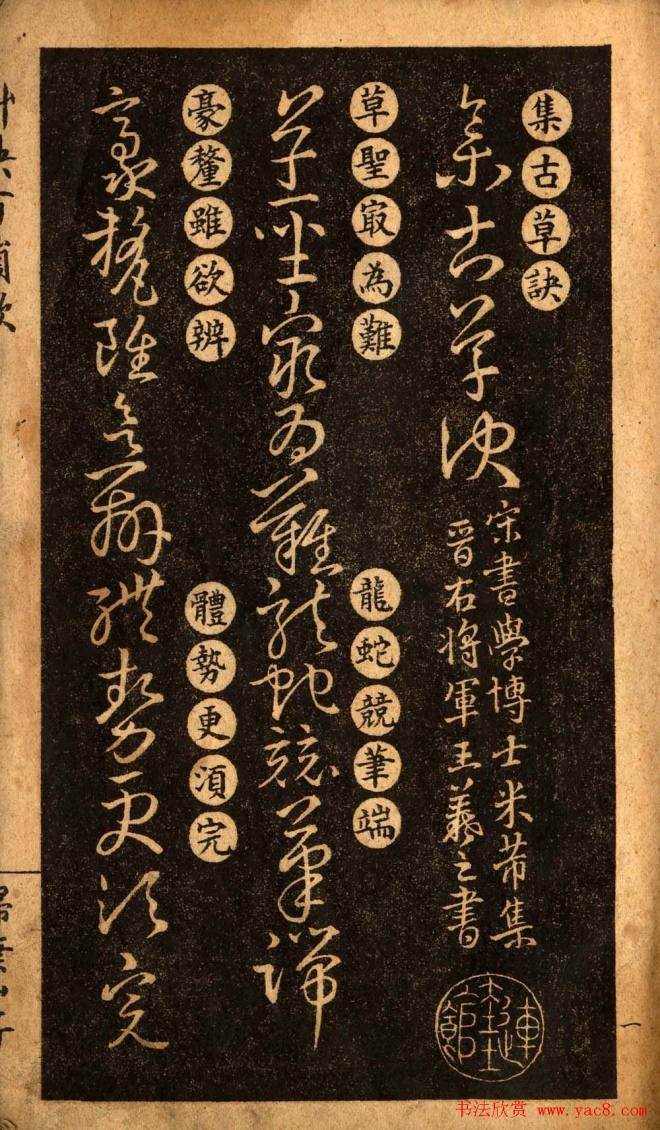 集古草訣
集古草訣
宋書學博士米芾集
晉右將軍王羲之書
草聖㝡為難
龍蛇競筆端
草聖㝡為難龍蛇競筆端
豪釐雖欲辨
體勢更湏完
豪釐雖欲辨體勢更須完
一
书法欣赏 www.yac8.com